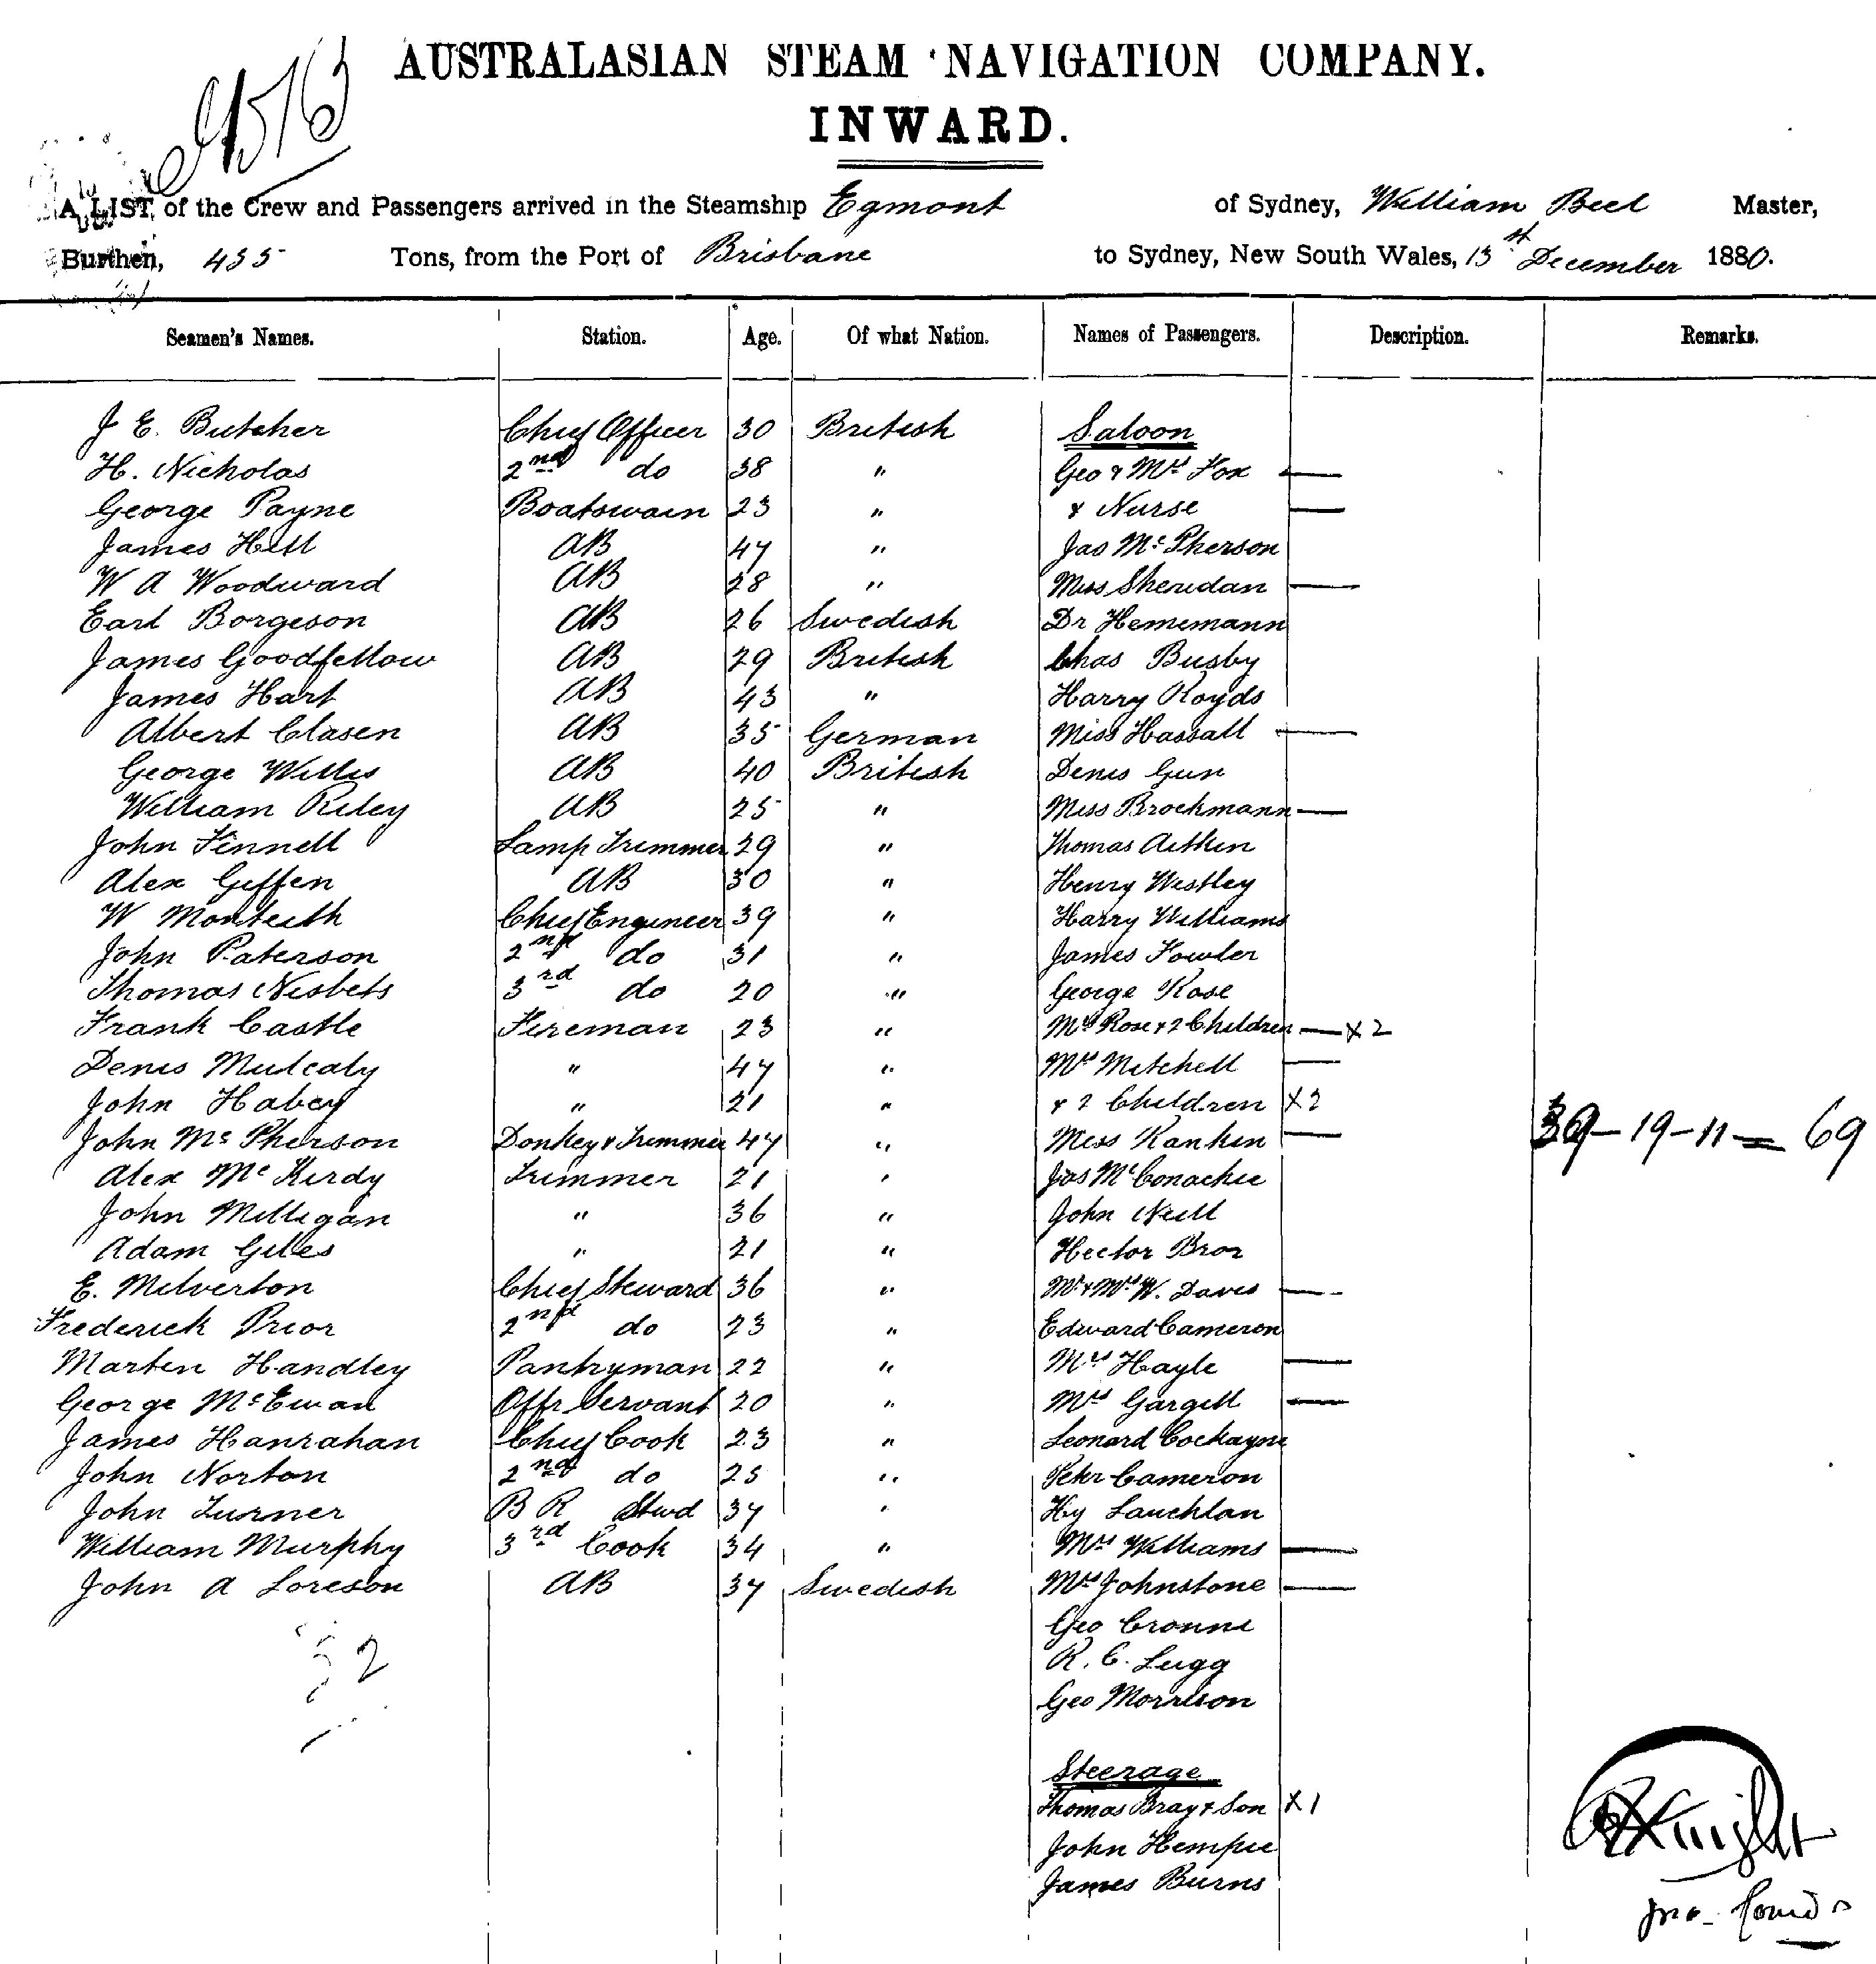 AUSTRALASIAN STEAM NAVIGATION COMPANY.
INWARD.
A LIST of the Crew and Passengers arrived in the Steamship Egmont of Sydney, William Beel Master,
Burthen, 455 Tons, from the Port of Brisbane to Sydney, New South Wales, 13 December 1880.
Seamen's Names. Station. Age. Of what Nation. Names of Passengers. Description. Remarks.
J E. Butcher Chief Officer 30 British Saloon
H. Nicholas 2nd do 38 " Geo & Mrs Fox —
George Payne Boatswain 23 " & Nurse —
James Hill AB 47 " Jas McPherson
W A Woodward AB 28 " Miss Sheridan —
Earl Borgeson AB 26 Swedish Dr Hememann
James Goodfellow AB 29 British Chas Busby
James Hart AB 43 " Harry Royds
Albert Clasen AB 35 German Miss Hassall —
George Willis AB 40 British Denis Gun
William Riley AB 25 " Miss Brockmann —
John Finnell Lamp Trimmer 29 " Thomas Aitkin
Alex Giffen AB 30 " Henry Westley
W Monteith Chief Engineer 39 " Harry Williams
John Paterson 2nd do 31 " James Fowler
Thomas Nisbets 3rd do 20 " George Rose
Frank Castle Fireman 23 " Mrs Rose & 2 Children — X 2
Denis Mulcaly " 47 " Mrs Mitchell —
John Habey " 21 " & 2 Children X 2
John McPherson Donkey & Trimmer 47 " Miss Rankin — 39-19-11 = 69
Alex McKirdy Trimmer 21 " Jas McConachie
John Milligan " 36 " John Neill
Adam Giles " 21 " Hector Bror
E. Milverton Chief Steward 36 " Mr & Mrs W. Davis —
Frederick Prior 2nd do 23 " Edward Cameron
Martin Handley Pantryman 22 " Mrs Hayle —
George McEwan Offr Servant 20 " Mrs Gargill —
James Hanrahan Chief Cook 23 " Leonard Cockayne
John Norton 2nd do 25 " Peter Cameron
John Turner B R Stwd 37 " Hy Lauchlan
William Murphy 3rd Cook 34 " Mrs Williams —
John A Loreson AB 37 Swedish Mrs Johnstone —
Geo Cronne
R. C. Lugg
32
Geo Morrison
Steerage
Thomas Bray & Son X 1
John Hempie
James Burns
Knight